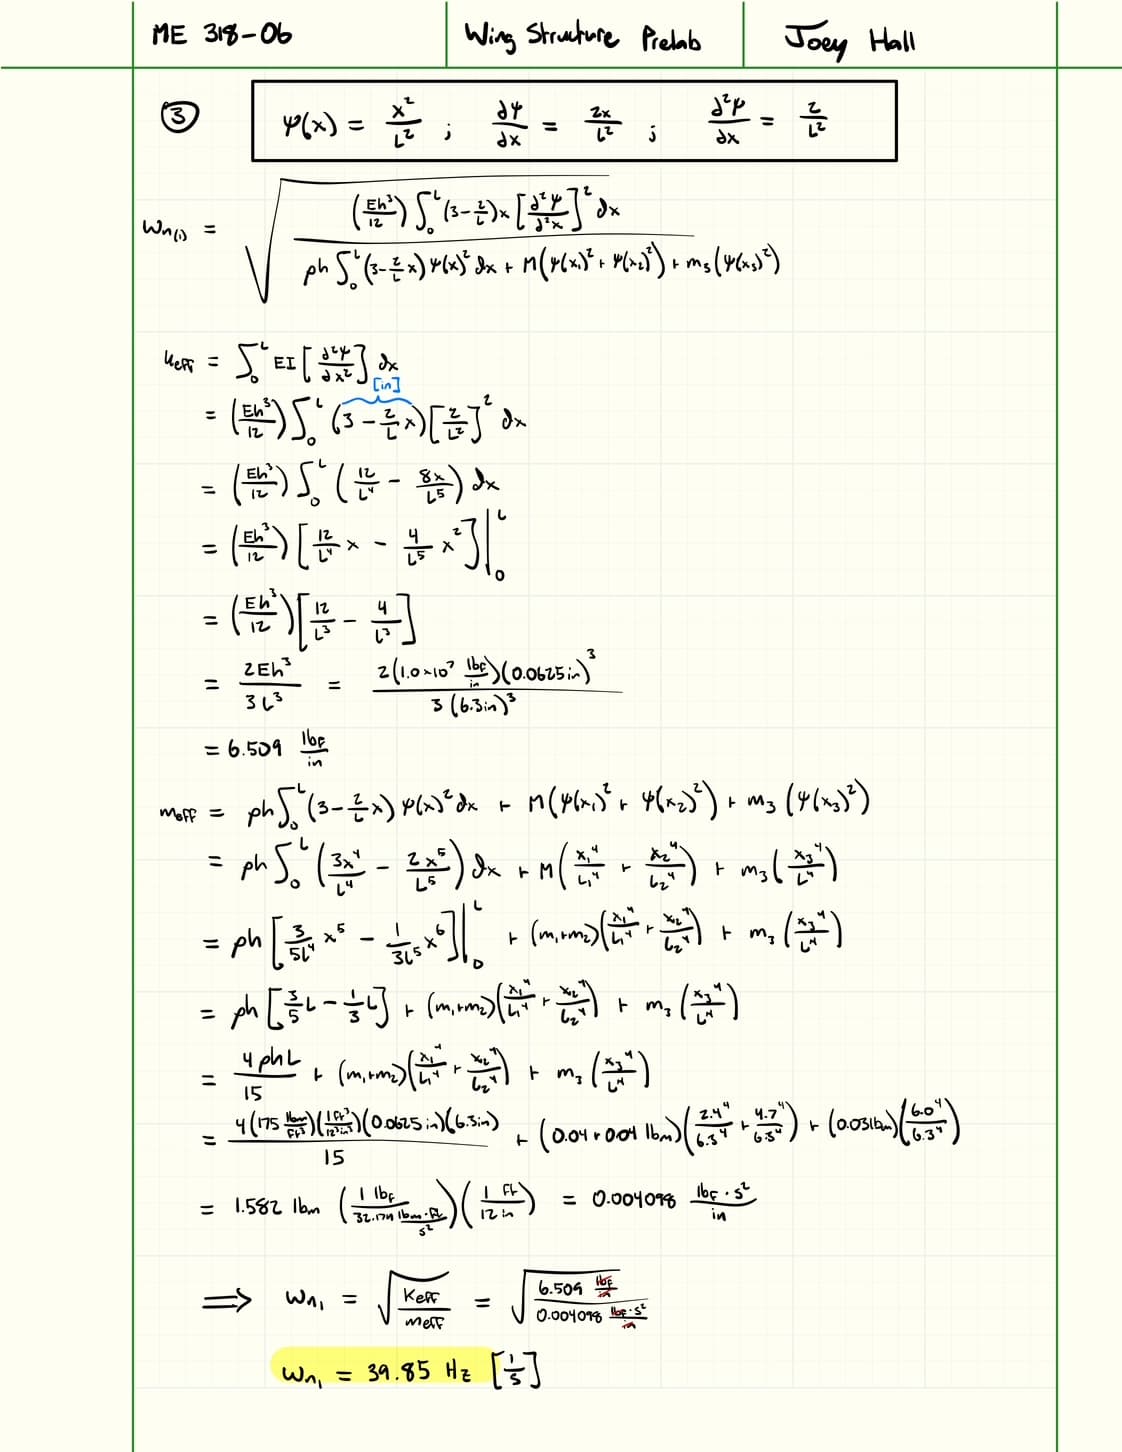 ME 318-06 Wing Structure Prelab Joey Hall
③ ψ(x) = x²/L² ; ∂ψ/∂x = 2x/L² ; ∂²ψ/∂x = 2/L²
Wn(1) = √( (Eh³/12) ∫₀ᴸ (3-2/L)x [∂²ψ/∂²x]² ∂x / ρh ∫₀ᴸ (3-2/L x) ψ(x)² ∂x + M(ψ(x₁)² + ψ(x₂)²) + m₃(ψ(x₃)²) )
Keff = ∫₀ᴸ EI [∂²ψ/∂x²] ∂x
[in]
= (Eh³/12) ∫₀ᴸ (3 - 2/L x) [2/L²]² ∂x
= (Eh³/12) ∫₀ᴸ (12/L⁴ - 8x/L⁵) ∂x
= (Eh³/12) [12/L⁴ x - 4/L⁵ x²] |₀ᴸ
= (Eh³/12) [12/L³ - 4/L³]
= 2Eh³/3L³ = 2(1.0×10⁷ lbf/in)(0.0625in)³/3(6.3in)³
= 6.509 lbf/in
meff = ρh ∫₀ᴸ (3-2/L x) ψ(x)² ∂x + M(ψ(x₁)² + ψ(x₂)²) + m₃ (ψ(x₃)²)
= ρh ∫₀ᴸ (3x⁴/L⁴ - 2x⁵/L⁵) ∂x + M(x₁⁴/L₁⁴ + x₂⁴/L₂⁴) + m₃(x₃⁴/L⁴)
= ρh [3/5L⁴ x⁵ - 1/3L⁵ x⁶] |₀ᴸ + (m₁+m₂)(x₁⁴/L₁⁴ + x₂⁴/L₂⁴) + m₃ (x₃⁴/L⁴)
= ρh [3/5 L - 1/3 L] + (m₁+m₂)(x₁⁴/L₁⁴ + x₂⁴/L₂⁴) + m₃ (x₃⁴/L⁴)
= 4ρhL/15 + (m₁+m₂)(x₁⁴/L₁⁴ + x₂⁴/L₂⁴) + m₃ (x₃⁴/L⁴)
= 4(175 lbm/Ft³)(1Ft³/12³in³)(0.0625in)(6.3in)/15 + (0.04+0.04 lbm)(2.4⁴/6.3⁴ + 4.7⁴/6.3⁴) + (0.03lbm)(6.0⁴/6.3⁴)
= 1.582 lbm (1 lbf/32.174 lbm·Ft/s²)(1 Ft/12 in) = 0.004098 lbf·s²/in
⟹ Wn₁ = √(Keff/meff) = √(6.509 lbf/in / 0.004098 lbf·s²/in)
Wn₁ = 39.85 Hz [1/s]